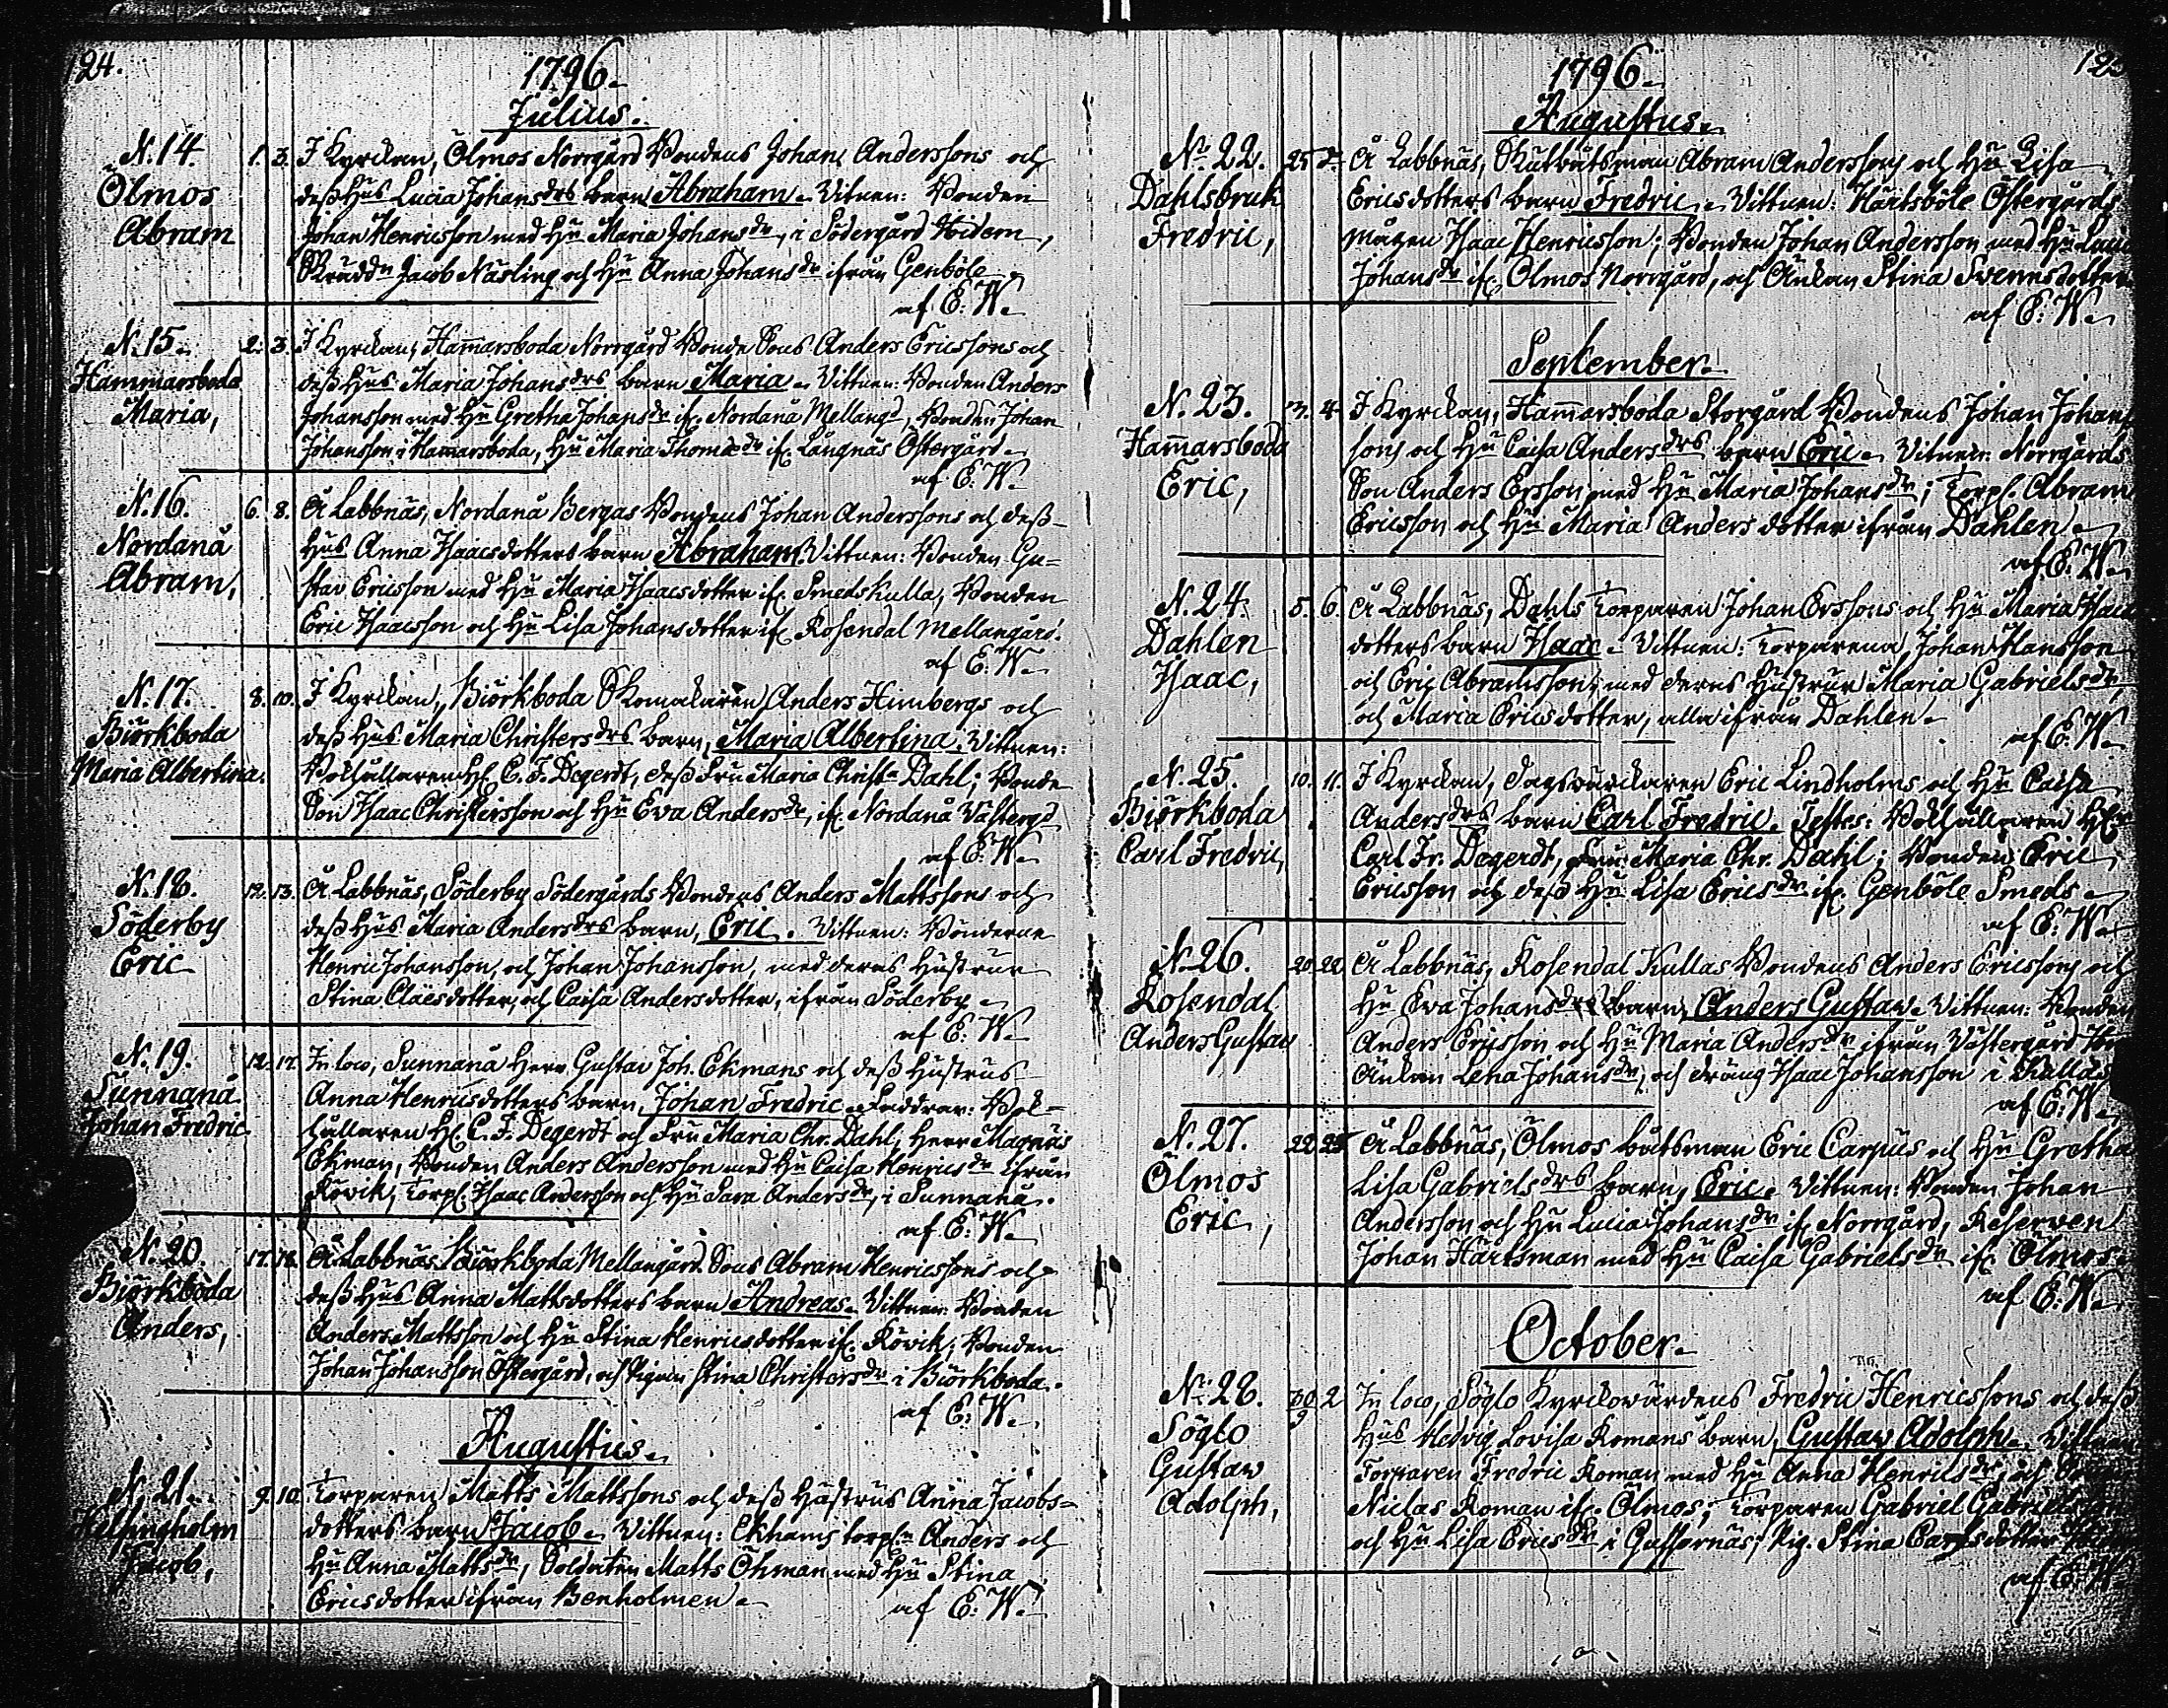 124.
1796.
Julius.
N. 14.
Ölmos
Abram
1. 3. I Kyrckan, Ölmos Norrgård Bondens Johan Anderssons och
dess Hus Lucia Johansdrs barn Abraham. Vitnen: Bonden
Johan Henricsson med Hu Maria Johansdr, i Södergård
Skrädd Jacob Näsling och Hu Anna Johansdr ifrån Genböle
af E. W.
N. 15.
Hammarsboda
Maria,
2. 3. I Kyrckan, Hammarsboda Norrgård Bonde Sons Anders Ericssons och
dess Hus Maria Johansdrs barn Maria. Vittnen: Bonden Anders
Johansson med Hu Gretha Johansdr if. Nordanå Mellang, Bonden Johan
Johansson i Hammarsboda, Hu Maria Thomædr if. Långnäs Östergård
af E. W.
N. 16.
Nordanå
Abram,
6. 8. Å Labbnäs, Nordanå Bergas Bondens Johan Anderssons och dess
Hus Anna Isaacsdotters barn Abraham. Vittnen: Bonden Gu=
stav Ericsson med Hu Maria Isaacsdotter if. Smedskulla, Bonden
Eric Isaacsson och Hu Lisa Johansdotter if. Rosendal Mellangård.
af E. W.
N. 17.
Biörkboda
Maria Albertina.
8. 10. I Kyrckan, Biörkboda Skomakaren Anders Himbergs och
dess Hus Maria Christersdrs barn, Maria Albertina. Vittnen:
Bokhållaren H. C. F. Degerdt, dess Fru Maria Christ. Dahl; Bonde
Son Isaac Christersson och Hu Eva Andersdr, if. Nordanå Västergd
af E. W.
N. 18.
Söderby
Eric
12. 13. Å Labbnäs, Söderby Södergårds Bondens Anders Mattssons och
dess Hus Maria Andersdrs barn, Eric. Vittnen: Bönderne
Henric Johansson, och Johan Johansson, med deras Hustrur
Stina Claësdotter, och Caisa Andersdotter, ifrån Söderby
af E. W.
N. 19.
Sunnanå
Johan Fredric
12. 17. In loco, Sunnanå Herr Gustav Joh. Ekmans och dess Hustrus
Anna Henricsdotters barn, Johan Fredric. Faddrar: Bok=
hållaren H. C. F. Degerdt och Fru Maria Chr. Dahl, Herr Magnus
Ekman, Bonden Anders Andersson med Hu Caisa Henricsdr ifrån
Rövik, Torp. Isaac Andersson och Hu Sara Andersdr, i Sunnanå.
af E. W.
N. 20.
Biörkboda
Anders,
17. 18. Å Labbnäs, Biörkboda Mellangård Sons Abram Henricssons och
dess Hus Anna Mattsdotters barn Andreas. Vittnen: Bonden
Anders Mattsson och Hu Stina Henricsdotter if. Rövik; Bonden
Johan Johansson Östergård, och Pigan Stina Christersdr i Biörkboda.
af E. W.
Augustus.
N. 21.
Helsingholm
Jacob,
9. 10. Torparen Matts Mattssons och dess Hustrus Anna Jacobs=
dotters barn Jacob. Vittnen: Ekhams torp. Anders och
Hu Anna Mattsdr, Soldaten Matts Öhman med Hu Stina
Ericsdotter ifrån Benholmen.
af E. W.
1796.
Augustus.
No 22.
Dahlsbruk
Fredric,
25 Å Labbnäs, Skutbåtsman Abram Anderssons och Hu Lisa
Ericsdotters barn Fredric. Vittnen: Härtsböle Östergårds
Mågen Isaac Henricsson; Bonden Johan Andersson med Hu
Johansdr if. Ölmos Norrgård, och Änkan Stina Svennsdotter
af E. W.
September.
N. 23.
Hammarsboda
Eric,
3. 4. I Kyrckan, Hammarsboda Storgård Bondens Johan Johans
sons och Hu Caisa Andersdrs barn Eric. Vitnen: Norrgårds
Son Anders Ersson med Hu Maria Johansdr; Torp. Abram
Ericsson och Hu Maria Andersdotter ifrån Dahlen.
af E. W.
N. 24.
Dahlen
Isaac,
5. 6. Å Labbnäs, Dahls Torparen Johan Erssons och Hu Maria Isacs
dotters barn Isaac. Vittnen: Torparena, Johan Hansson
och Eric Abramsson, med deras Hustrur Maria Gabrielsdr,
och Maria Ericsdotter, alla ifrån Dahlen.
af E. W.
N. 25.
Biörkboda
Carl Fredric,
10. 11. I Kyrckan, dagsvärckaren Eric Lindholms och Hu Caisa
Andersdrs barn Carl Fredric. Testes: Bokhållaren H.
Carl Fr. Degerdt, Fru Maria Chr. Dahl; Bonden Eric
Ericsson och dess Hu Lisa Ericsdr if. Genböle Smeds
af E. W.
N. 26.
Rosendal
Anders Gustav
20. 22. Å Labbnäs, Rosendal Kullas Bondens Anders Ericssons och
Hu Eva Johansdrs barn Anders Gustav. Vittnen: Bonden
Anders Ericsson och Hu Maria Andersdr ifrån Västergård
Änkan Lena Johansdr, och dräng Isaac Johansson i Kullas
af E. W.
N. 27.
Ölmos
Eric,
22. 25. Å Labbnäs, Ölmos båtsman Eric Carpus och Hu Gretha
Lisa Gabrielsdrs barn, Eric. Vittnen: Bonden Johan
Andersson och Hu Lucia Johansdr if. Norrgård, Reserven
Johan Härtsman med Hu Caisa Gabrielsdr if. Ölmos.
af E. W.
October.
N. 28.
Söglo
Gustaw
Adolph,
30/9 2 In loco, Söglo Kyrckovärdens Fredric Henricssons och dess
Hus Hedvig Lovisa Romans barn, Gustaw Adolph.
Torparen Fredric Roman med Hu Anna Henricsdr, och
Niclas Roman if. Ölmos, Torparen Gabriel
och Hu Lisa Ericsdr i Gussornäs; Pig. Stina
af E. W.